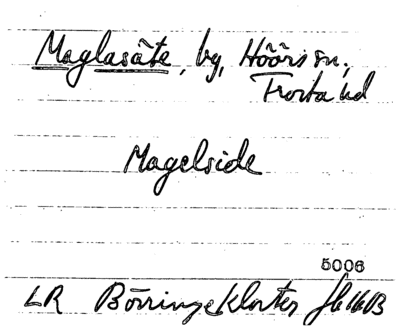 Maglasäte, by, Höörs sn,
Frosta hd
Magelside
5006
LR Börringekloster